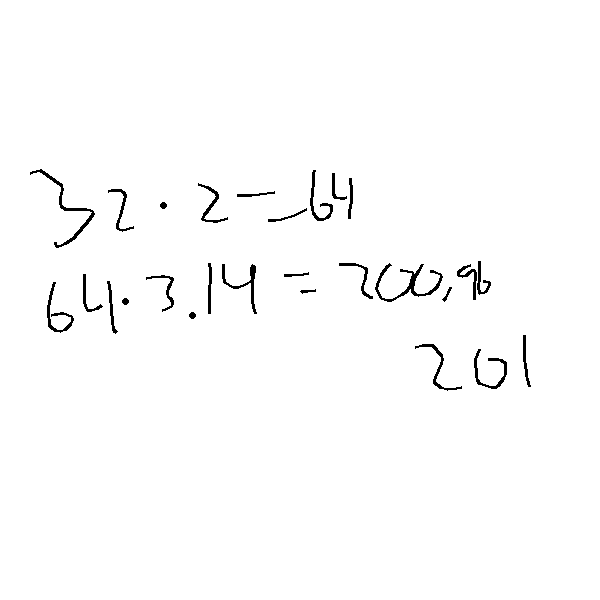 32 · 2 = 64
64 · 3.14 = 200,96
201